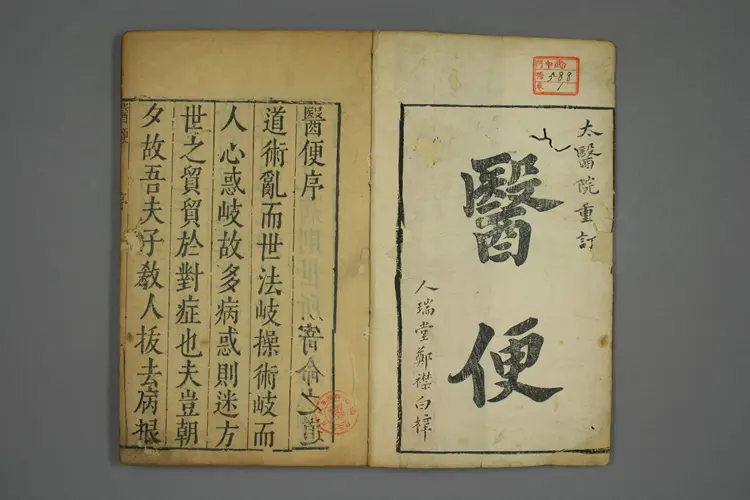 太醫院重訂
醫便
人瑞堂鄭襟白梓
588
1
醫便序
道術亂而世法岐操術岐而
人心惑岐故多病惑則迷方
世之貿貿於對症也夫豈朝
夕故吾夫子教人拔去病根